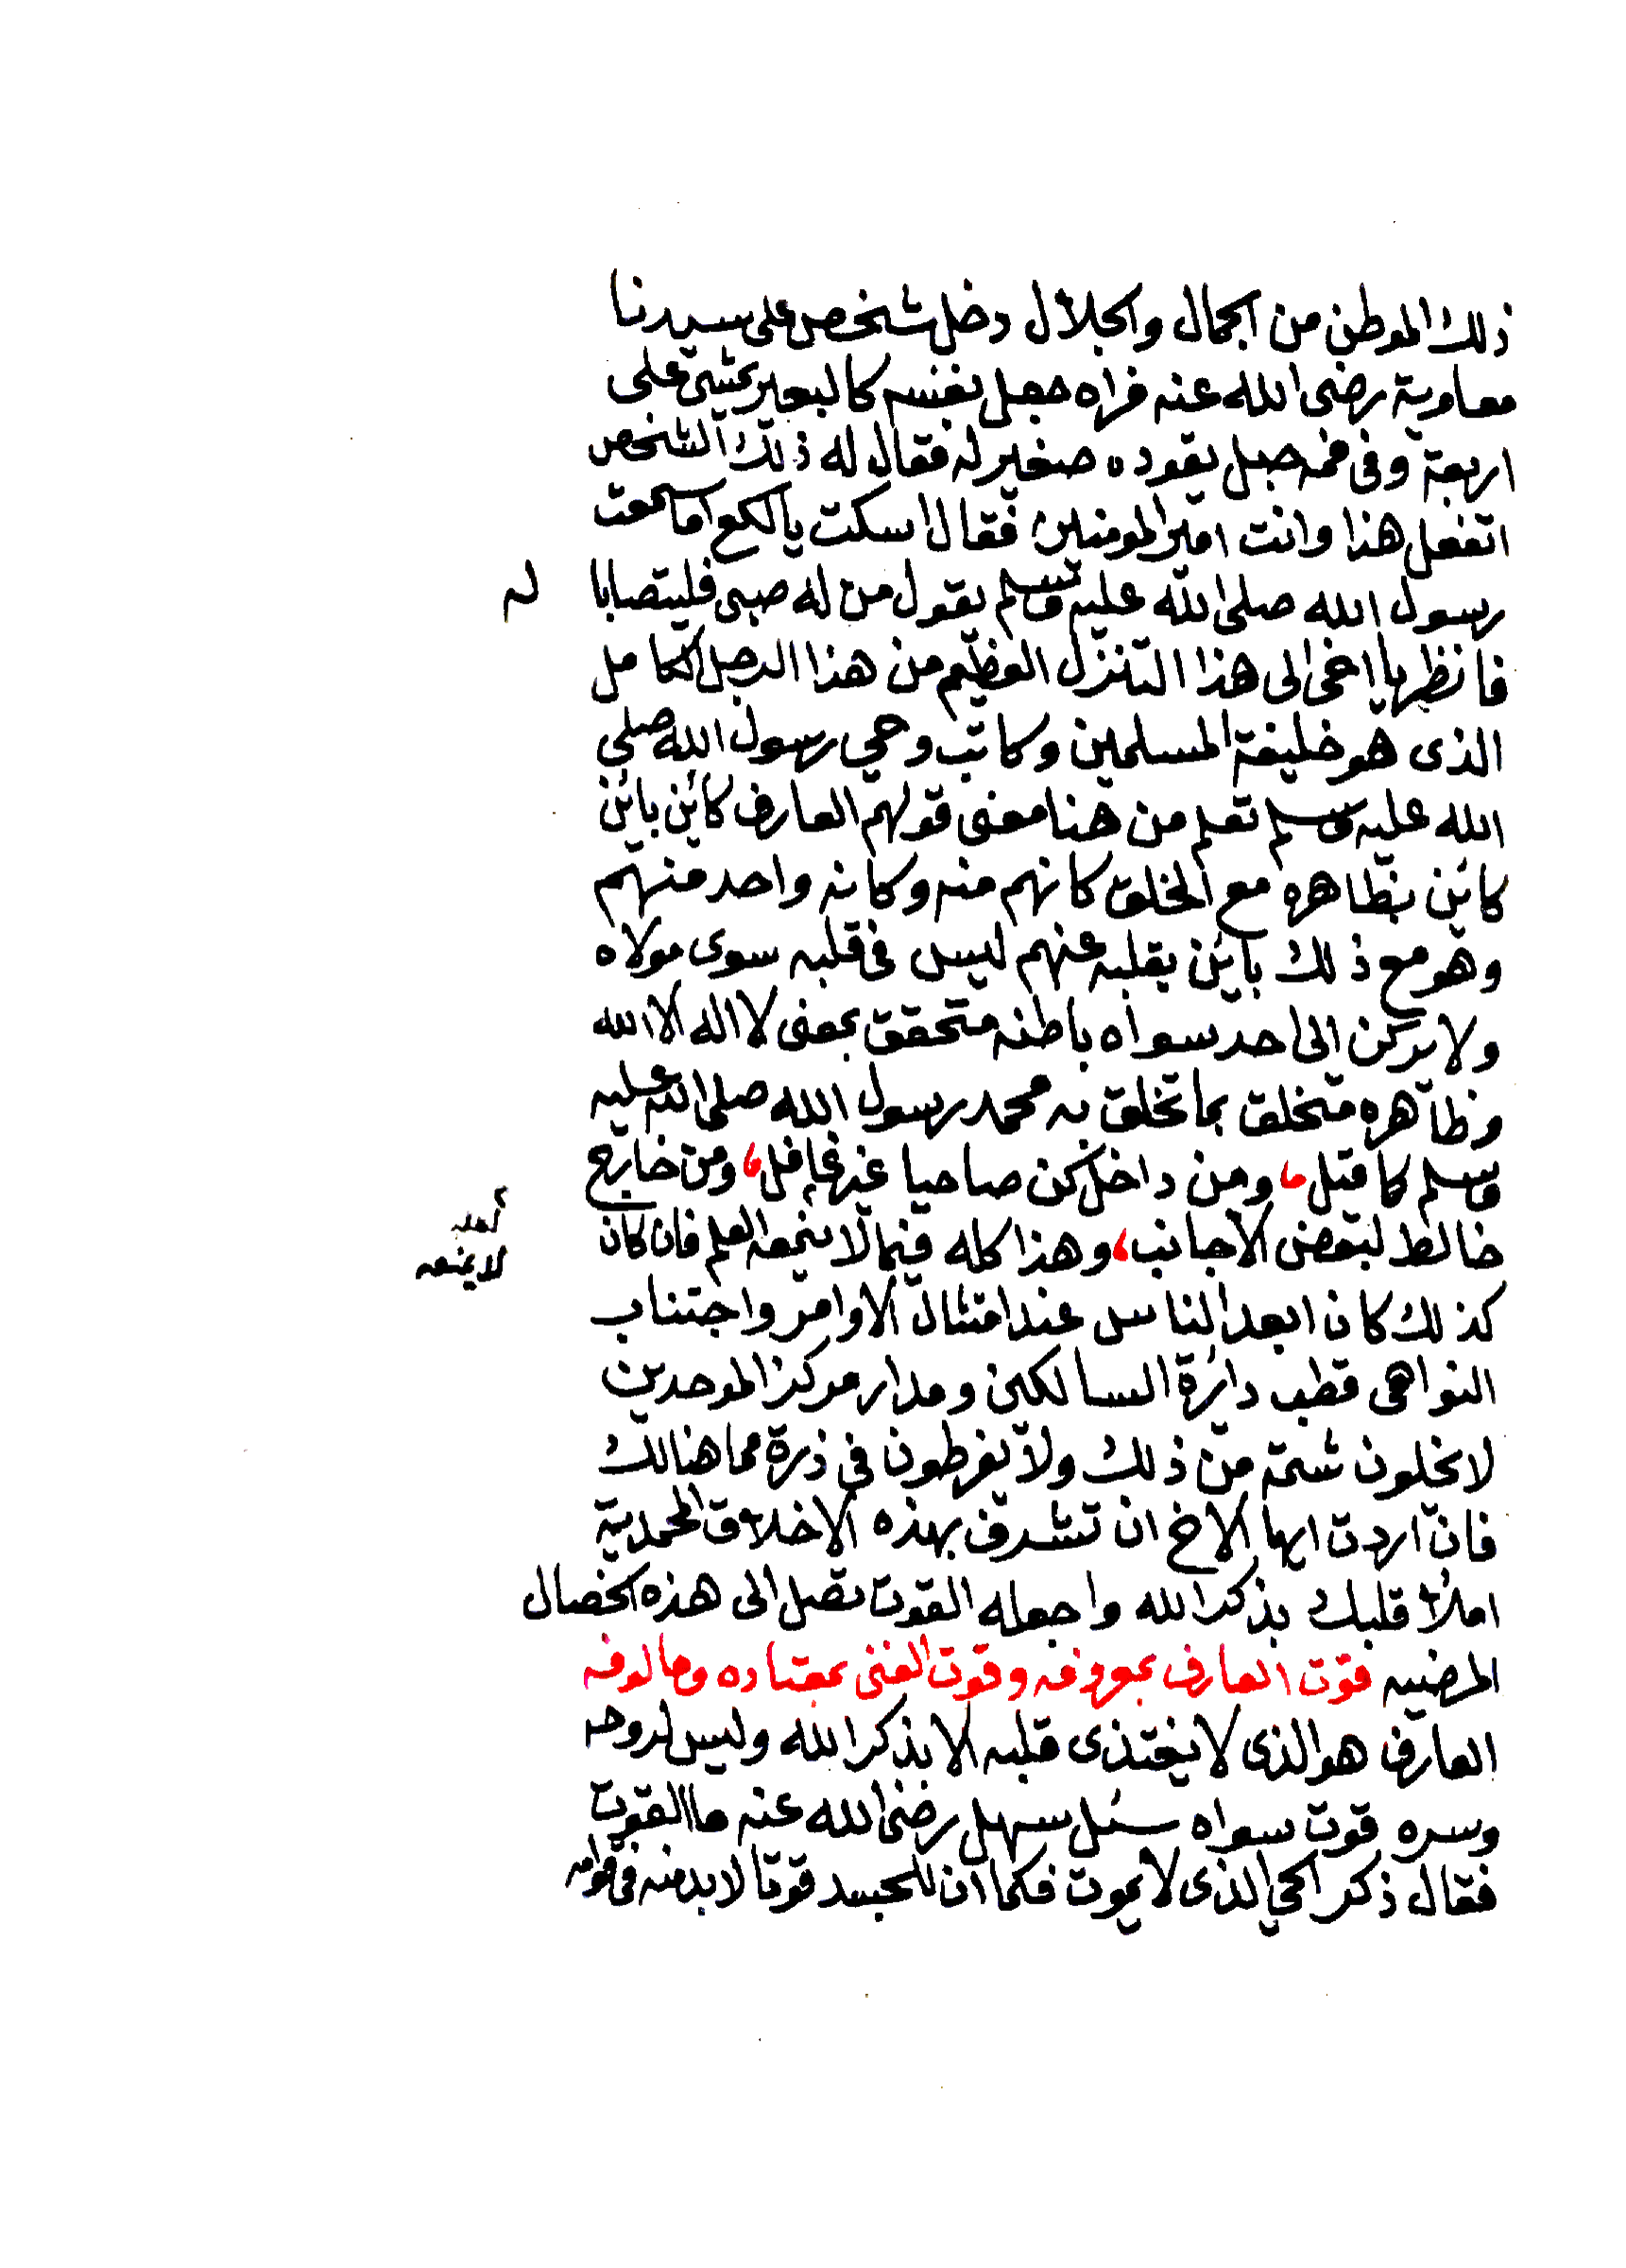 ذلك الموطن من الجمال والجلال دخل شخص على سيدنا
معاوية رضى الله عنه فراه جعل نفسه كالبعير يمشي على
اربعة وفى فمه حبل يقوده صغير له فقال له ذلك الشخص
اتفعل هذا وانت امير المومنين فقال اسكت يا لكع اما سمعت
رسول الله صلى الله عليه وسلم يقول من له صبى فليتصابا له
فانظر يا اخى الى هذا التنزل العظيم من هذا الرجل الكامل
الذى هو خليفة المسلمين وكاتب وحي رسول الله صلى
الله عليه وسلم تعلم من هنا معنى قولهم العارف كائن بائن
كائن بظاهره مع الخلق كانهم منه وكانه واحد منهم
وهو مع ذلك بائن بقلبه عنهم ليس فى قلبه سوى مولاه
ولا يركن الى احد سواه باطنه متحقق بمعنى لا اله الا الله
وظاهره متخلق بما تخلق به محمد رسول الله صلى الله عليه
وسلم كما قيل، ومن داخل كن صاحيا غير غافل، ومن خارج
خالط لبعض الاجانب، وهذا كله فيما لا ينمعه العلم فان كان
لعله
لا يمنعه
كذلك كان ابعد الناس عند امتثال الاوامر واجتناب
النواهى قطب دائرة السالكين ومدار مركز الموحدين
لا يخلون شمة من ذلك ولا يفرطون فى ذرة مما هنالك
فان اردت ايها الاخ ان تتشرف بهذه الاخلاق المحمدية
املأ قلبك بذكر الله واجعله القوت تصل الى هذه الخصال
المرضيه قوت العارف بمعروفه وقوت الغنى بمعتاده ومالوفه
العارف هو الذى لا يغتذى قلبه الا بذكر الله وليس لروحه
وسره قوت سواه سئل سهل رضى الله عنه ما القوت
فقال ذكر الحي الذى لا يموت فكما ان للجسد قوتا لا بد منه فى قوامه